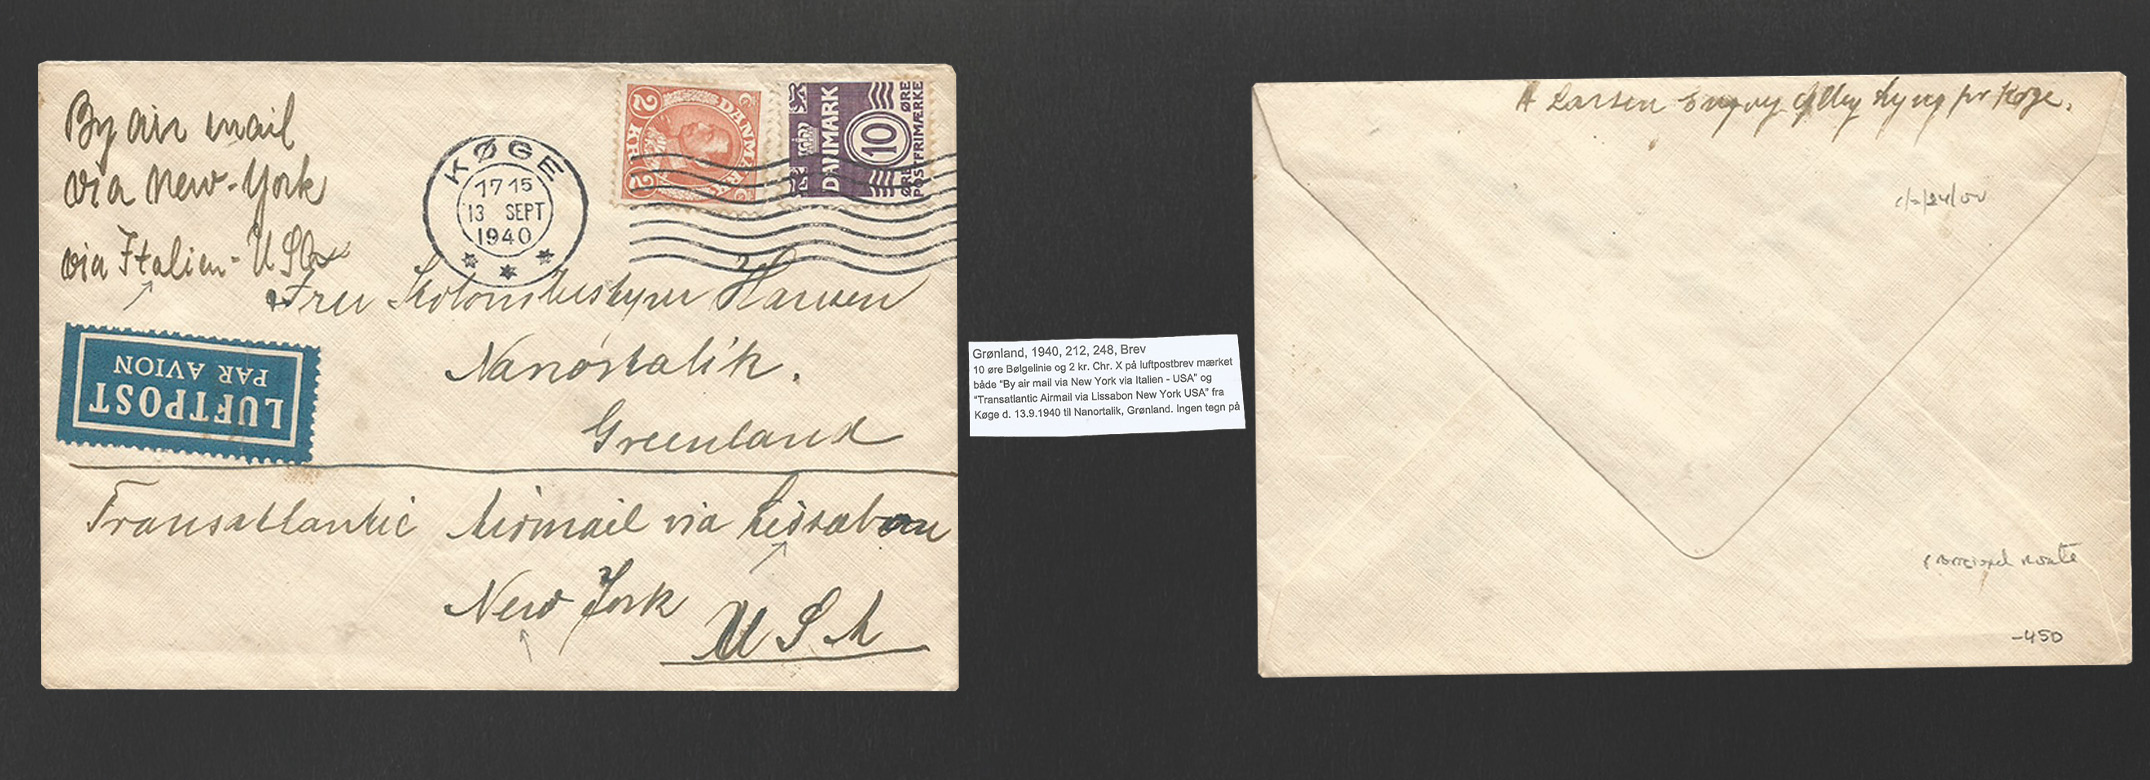 By air mail
via New-York
via Italien - USA
KØGE
17 15
13 SEPT
1940
DANMARK
2 KR 2
DANMARK
10
ØRE ØRE
POSTFRIMÆRKE
Fru Kolonibestyrer Hansen
Nanortalik.
Greenland
LUFTPOST
PAR AVION
Transatlantic Airmail via Lissabon
New York
USA
Grønland, 1940, 212, 248, Brev
10 øre Bølgelinie og 2 kr. Chr. X på luftpostbrev mærket
både "By air mail via New York via Italien - USA" og
"Transatlantic Airmail via Lissabon New York USA" fra
Køge d. 13.9.1940 til Nanortalik, Grønland. Ingen tegn på
A Larsen Lyng pr Køge.
route
-450